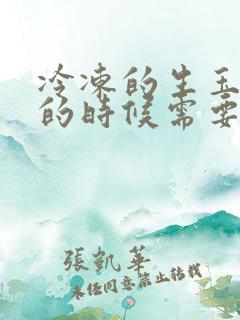 冷凍的生玉
的時候需要
張凱華
未經同意禁止轉載